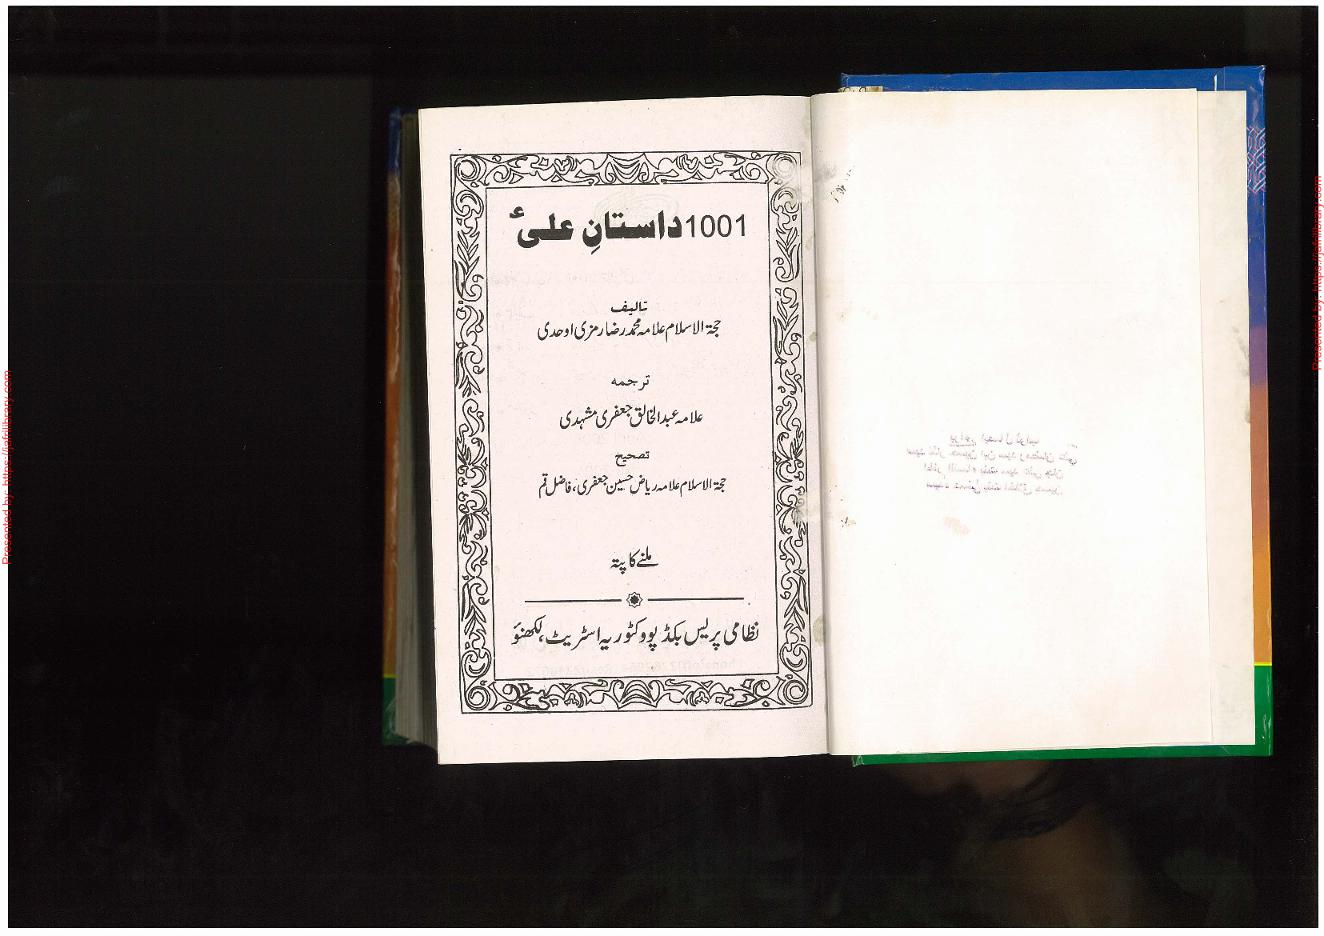 1001 داستانِ علیؑ
تالیف
حجۃ الاسلام علامہ محمد رضا رمزی اوحدی
ترجمہ
علامہ عبدالخالق جعفری مشہدی
تصحیح
حجۃ الاسلام علامہ ریاض حسین جعفری، فاضل قم
ملنے کا پتہ
نظامی پریس بکڈپو وکٹوریہ اسٹریٹ، لکھنؤ
Presented by: https://jafrilibrary.com
Presented by: https://jafrilibrary.com